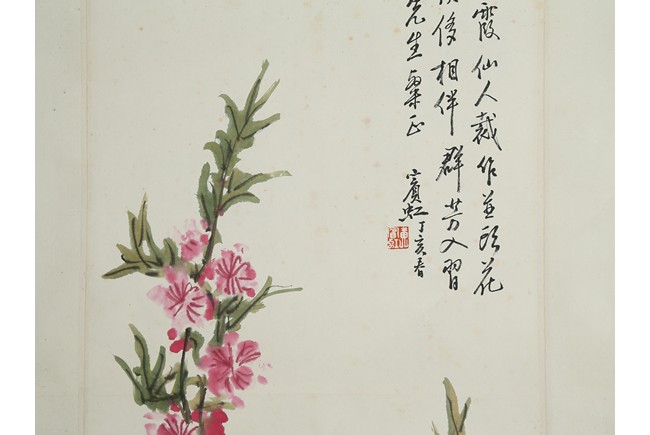 霞仙人裁作並頭花
侈相伴群芳入習
先生粲正
賓虹丁亥春